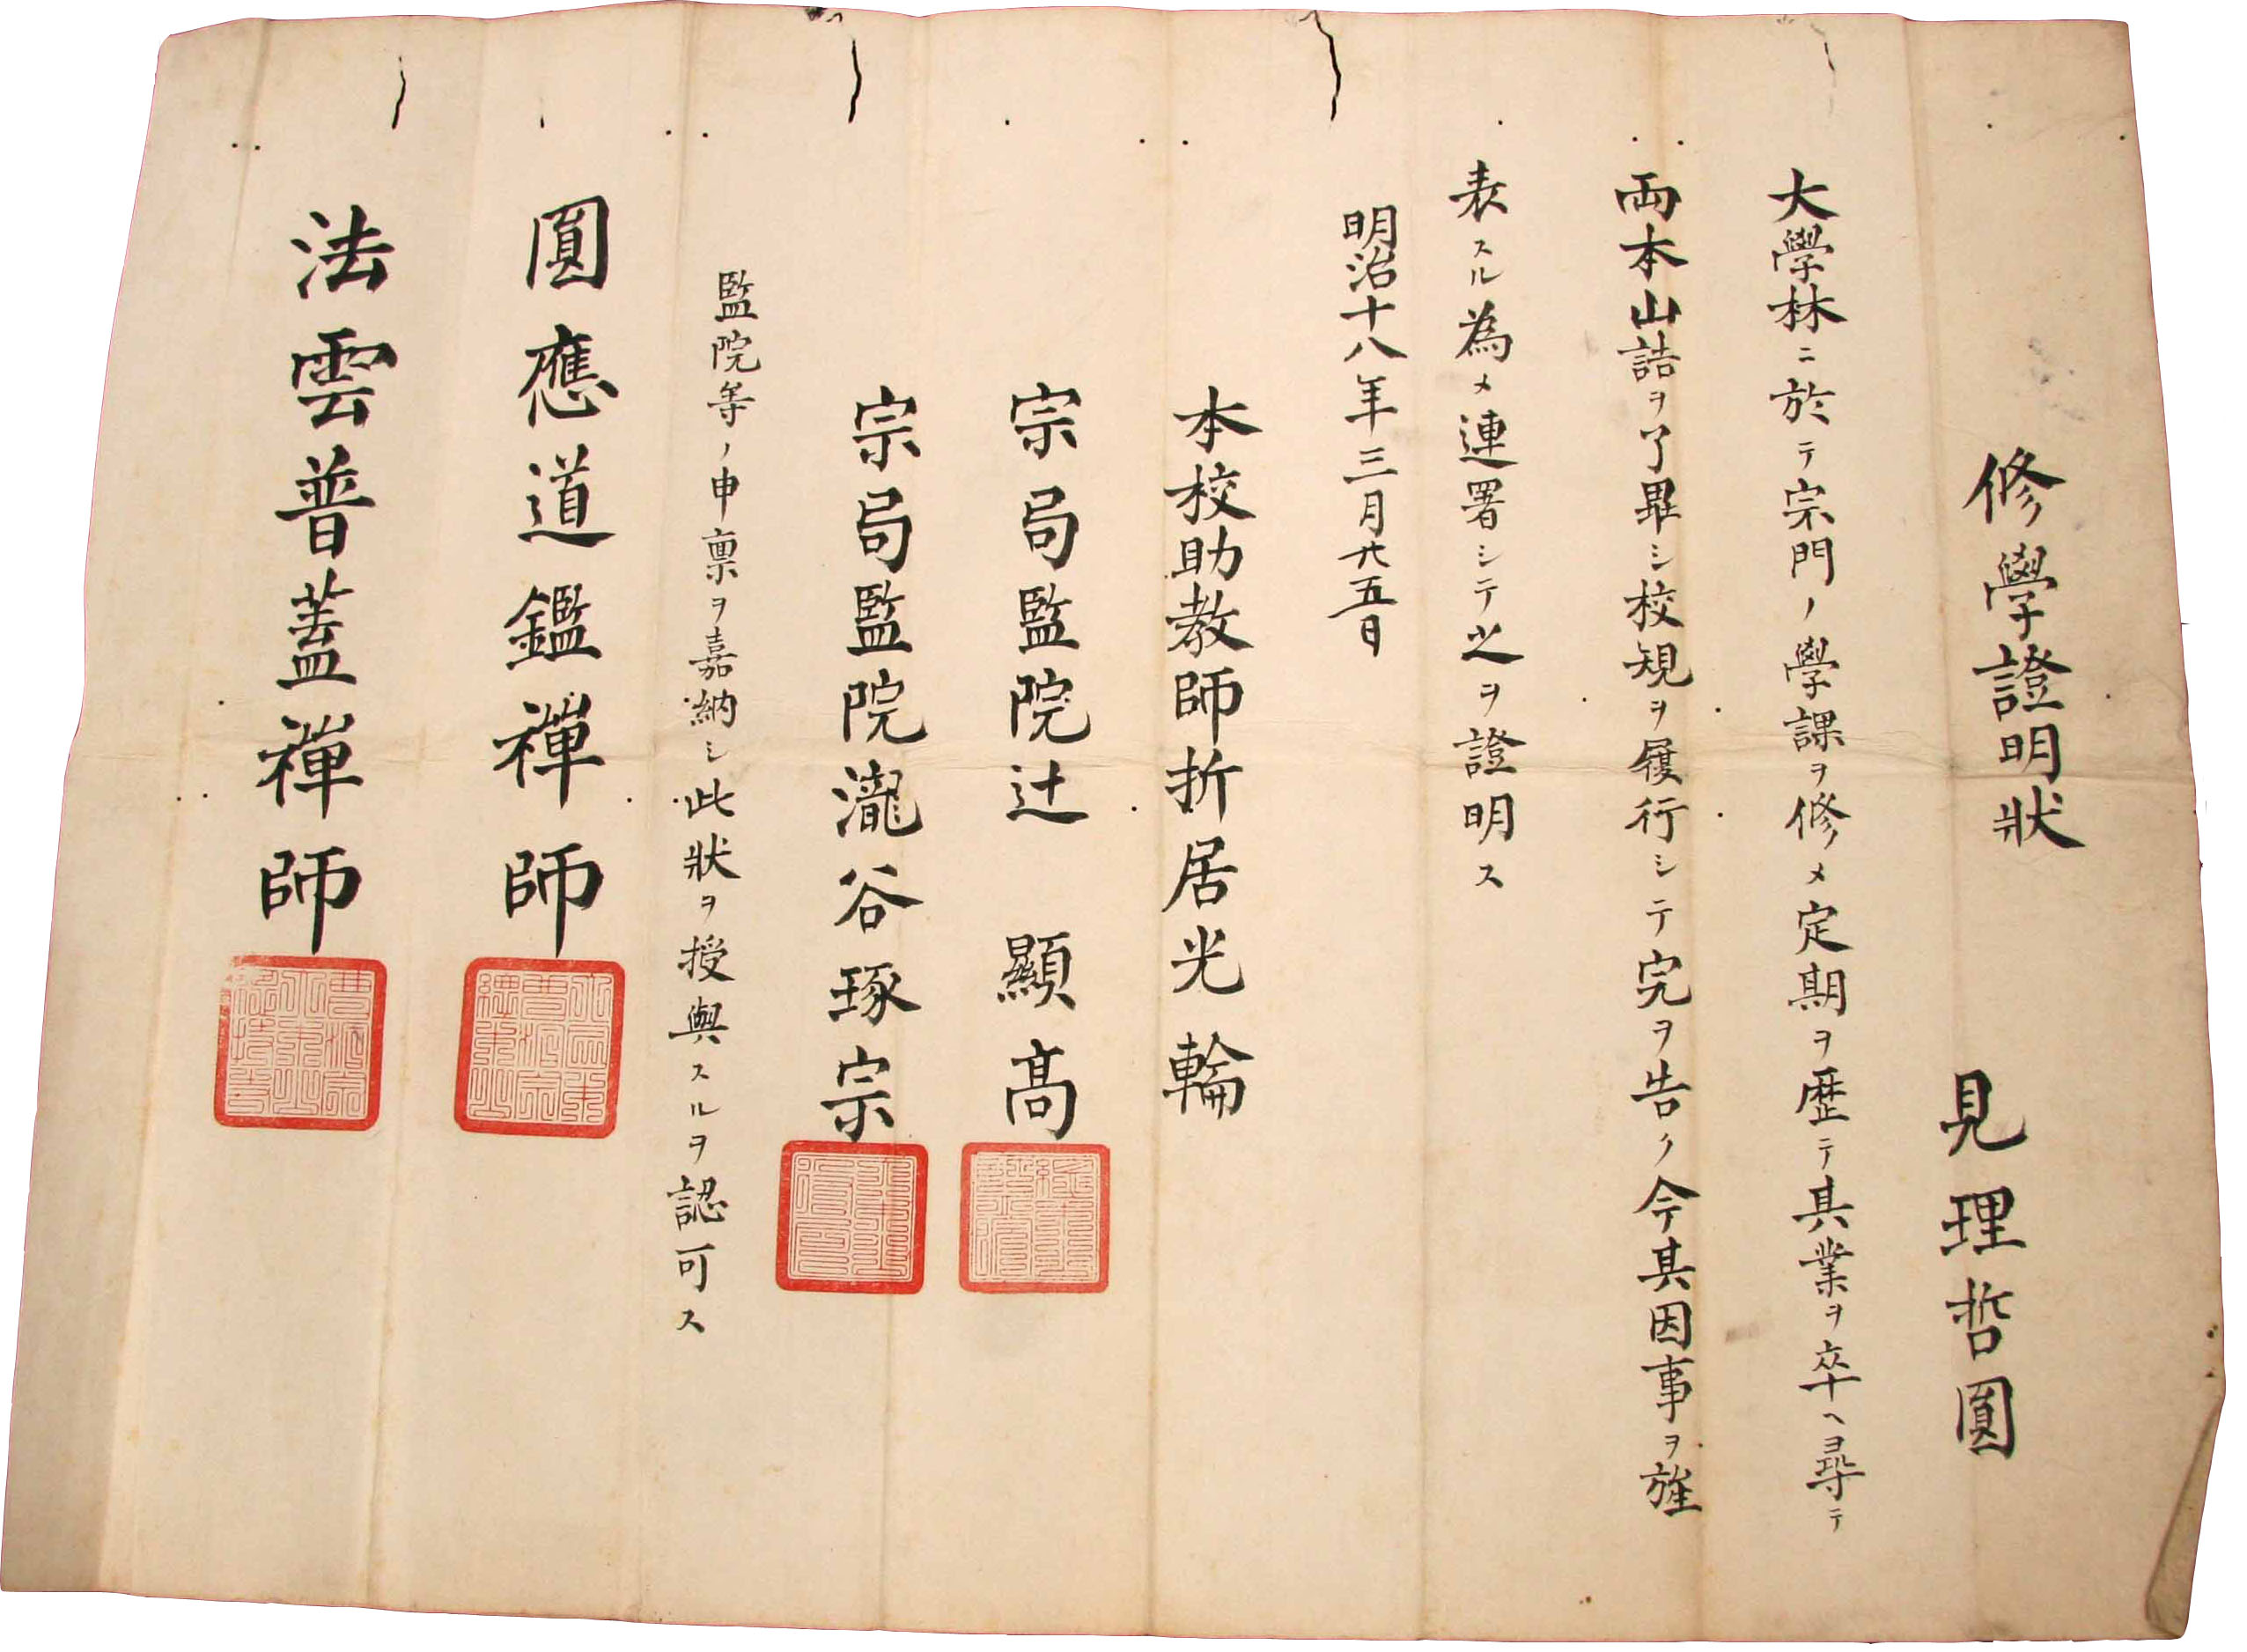 修學證明狀
見理哲圓
大學林ニ於テ宗門ノ學課ヲ修メ定期ヲ歴テ其業ヲ卒ヘ尋テ
両本山詰ヲ了畢シ校規ヲ履行シテ完ヲ告ク今其因事ヲ旌
表スル為メ連署シテ之ヲ證明ス
明治十八年三月廿五日
本校助教師折居光輪
宗局監院辻顯高
宗局監院瀧谷琢宗
監院等ノ申禀ヲ嘉納シ此狀ヲ授與スルヲ認可ス
圓應道鑑禅師
法雲普蓋禅師